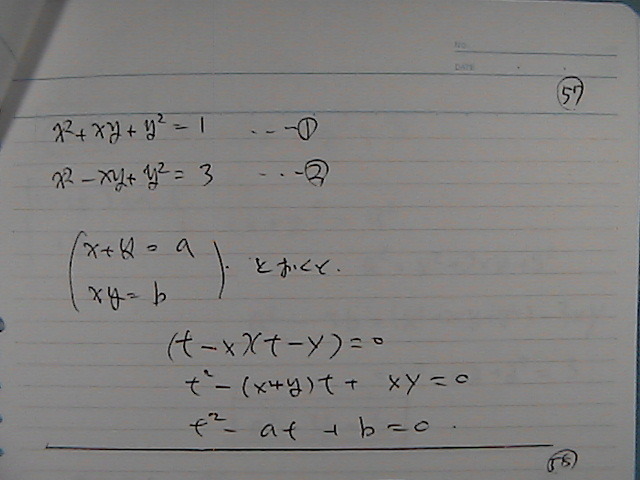 NO.
DATE
57
x²+xy+y²=1 ...①
x²-xy+y²=3 ...②
x+y=a
xy=b
とおくと.
(t-x)(t-y)=0
t²-(x+y)t+xy=0
t²-at+b=0.
58